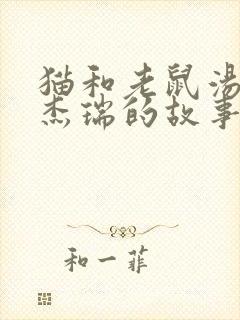 猫和老鼠汤
杰瑞的故事
和一菲